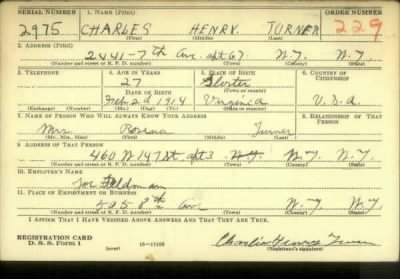 SERIAL NUMBER 1. NAME (Print) ORDER NUMBER
2975 CHARLES HENRY TURNER 229
(First) (Middle) (Last)
2. ADDRESS (Print)
2441-7th Ave. apt 67. N.Y. N.Y.
(Number and street or R. F. D. number) (Town) (County) (State)
3. TELEPHONE 4. AGE IN YEARS 5. PLACE OF BIRTH 6. COUNTRY OF CITIZENSHIP
27 Gloster
DATE OF BIRTH (Town or county)
Feb 2d 1914 Virginia U.S.A
(Exchange) (Number) (Mo.) (Day) (Yr.) (State or country)
7. NAME OF PERSON WHO WILL ALWAYS KNOW YOUR ADDRESS 8. RELATIONSHIP OF THAT PERSON
Mrs Turner
(Mr., Mrs., Miss) (First) (Middle) (Last)
9. ADDRESS OF THAT PERSON
460 W 147 St. apt 3 N.Y. N.Y. N.Y.
(Number and street or R. F. D. number) (Town) (County) (State)
10. EMPLOYER'S NAME
Joe Feldman
11. PLACE OF EMPLOYMENT OR BUSINESS
505 8th Ave N.Y N.Y.
(Number and street or R. F. D. number) (Town) (County) (State)
I AFFIRM THAT I HAVE VERIFIED ABOVE ANSWERS AND THAT THEY ARE TRUE.
REGISTRATION CARD
D. S. S. Form 1 (over) 16-17105 Charlie Henry Turner
(Registrant's signature)